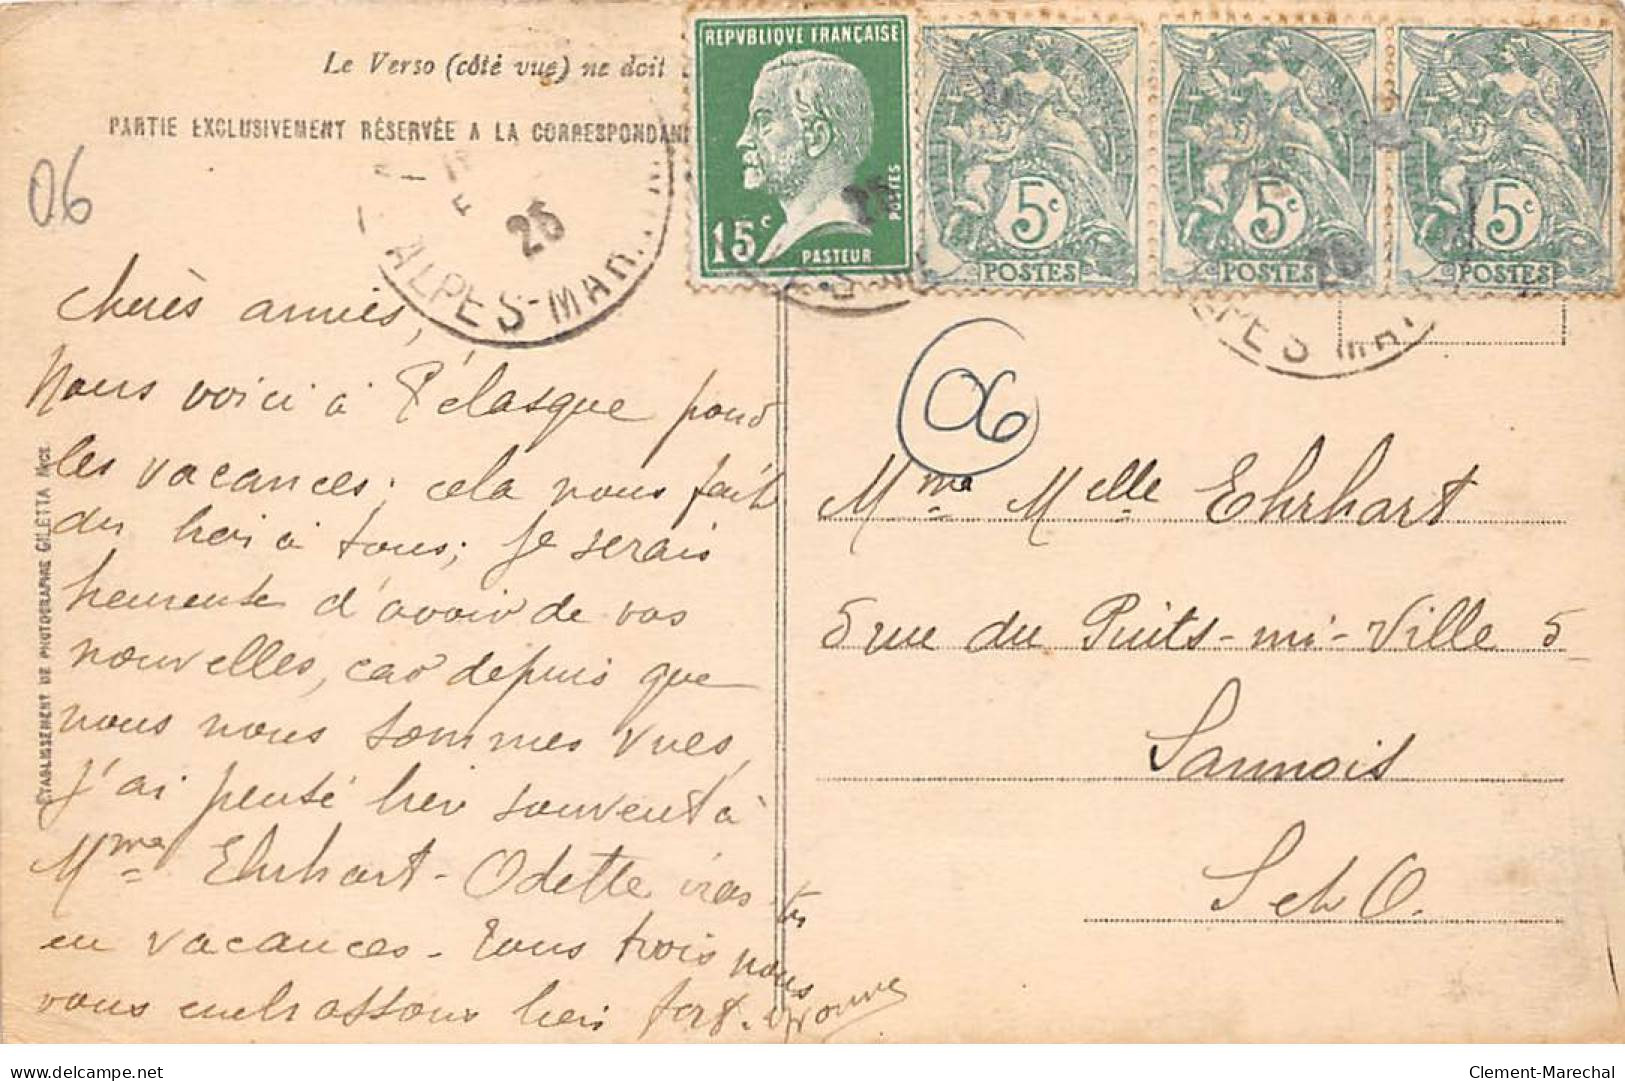 Le Verso (côté vue) ne doit
PARTIE EXCLUSIVEMENT RÉSERVÉE A LA CORRESPONDAN
06
25
ALPES-MAR.
REPVBLIQVE FRANÇAISE
15c
POSTES
PASTEUR
5c
POSTES
5c
POSTES
5c
POSTES
25
ALPES MAR
06
ÉTABLISSEMENT DE PHOTOGRAPHIE GILETTA NICE
Chères amies,
Nous voici à Pélasque pour
les vacances; cela nous fait
du bien à tous; je serais
heureuse d'avoir de vos
nouvelles, car depuis que
nous nous sommes vues,
j'ai pensé bien souvent à
Mme Ehrhart - Odette iras-tu
en vacances - Tous trois nous
vous embrassons bien fort. Yvonne
Mme Melle Ehrhart
5 rue du Puits-mi-Ville 5
Sannois
S et O.
Clement-Marechal